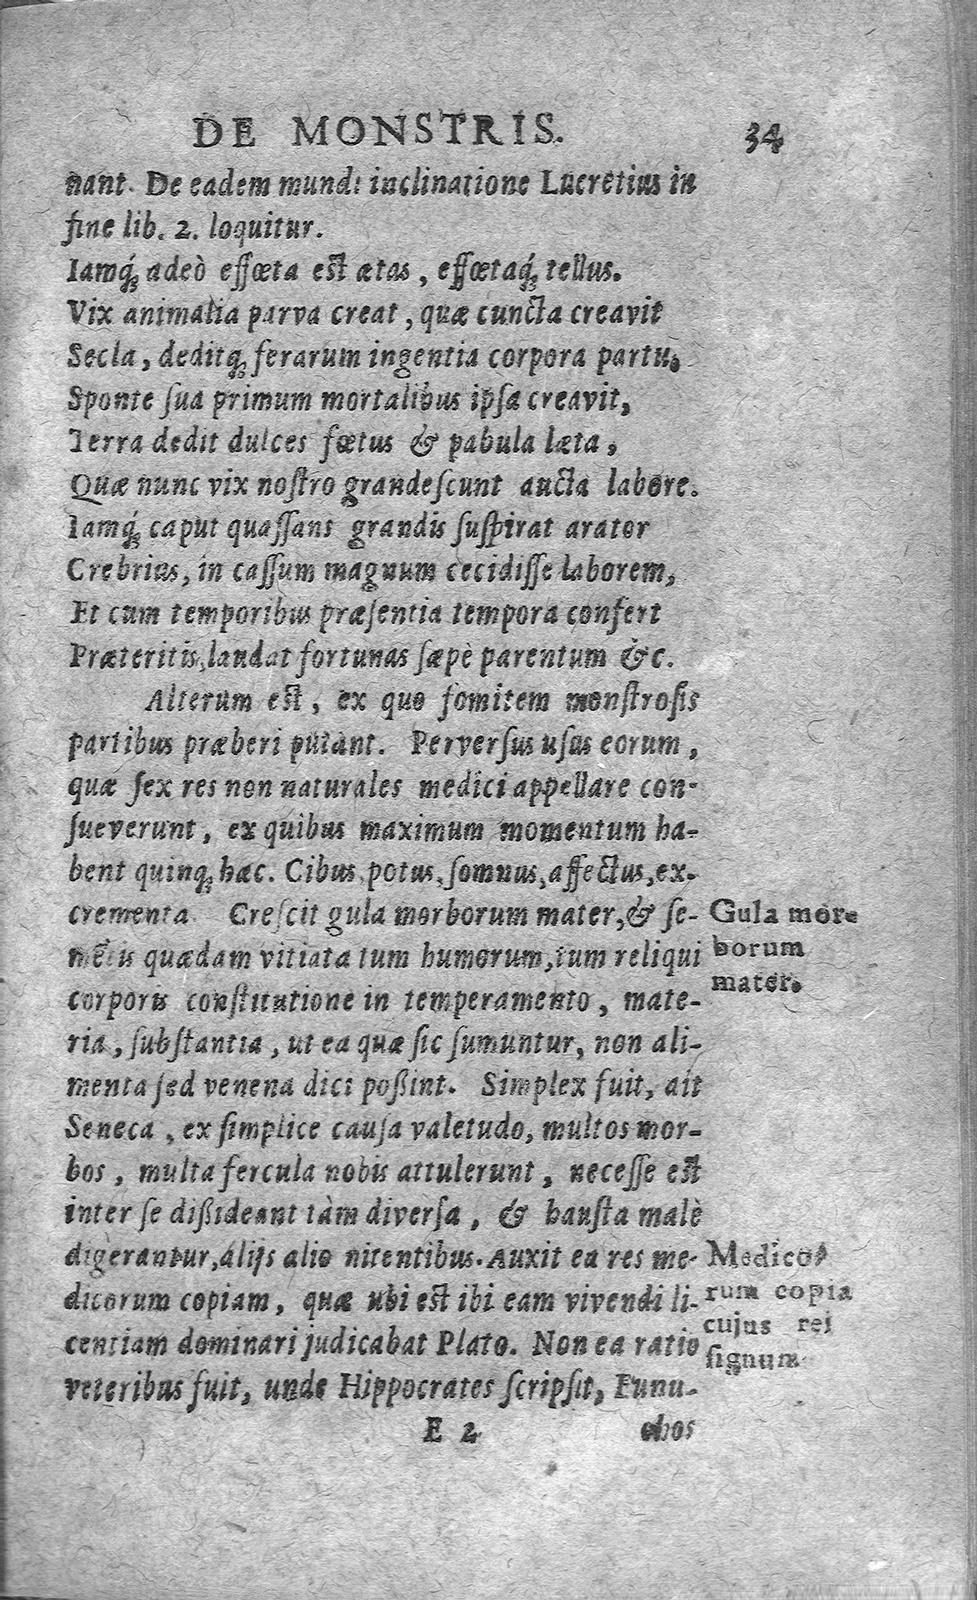 DE MONSTRIS. 34
nant. De eadem mundi inclinatione Lucretius in
fine lib. 2. loquitur.
Iamq́; adeò effœta est ætas, effœtaq́; tellus.
Vix animalia parva creat, quæ cuncta creavit
Secla, deditq; ferarum ingentia corpora partu.
Sponte ſua primum mortalibus ipſa creavit,
Terra dedit dulces fœtus & pabula læta,
Quæ nunc vix noſtro grandeſcunt aucta labore.
Iamq́; caput quaſſans grandis ſuſpirat arator
Crebrius, in caſſum magnum cecidiſſe laborem,
Et cum temporibus præſentia tempora confert
Præteritis, laudat fortunas ſæpè parentum &c.
Alterum est, ex quo fomitem monſtroſis
partibus præberi putant. Perverſus uſus eorum,
quæ ſex res non naturales medici appellare con-
ſueverunt, ex quibus maximum momentum ha-
bent quinq; hæc. Cibus, potus, ſomnus, affectus, ex-
crementa. Creſcit gula morborum mater, & ſe-
quædam vitiata tum humorum, tum reliqui
corporis conſtitutione in temperamento, mate-
ria, ſubſtantia, ut ea quæ ſic ſumuntur, non ali-
menta ſed venena dici poßint. Simplex fuit, ait
Seneca, ex ſimplice cauſa valetudo, multos mor-
bos, multa fercula nobis attulerunt, neceſſe est
inter ſe dißideant tàm diverſa, & hauſta malè
digerantur, alijs alio nitentibus. Auxit ea res me-
dicorum copiam, quæ ubi est ibi eam vivendi li-
centiam dominari judicabat Plato. Non ea ratio
veteribus fuit, unde Hippocrates ſcripſit, Eunu-
E 2 chos
Gula mor-
borum
mater.
Medico-
rum copia
cujus rei
ſignum